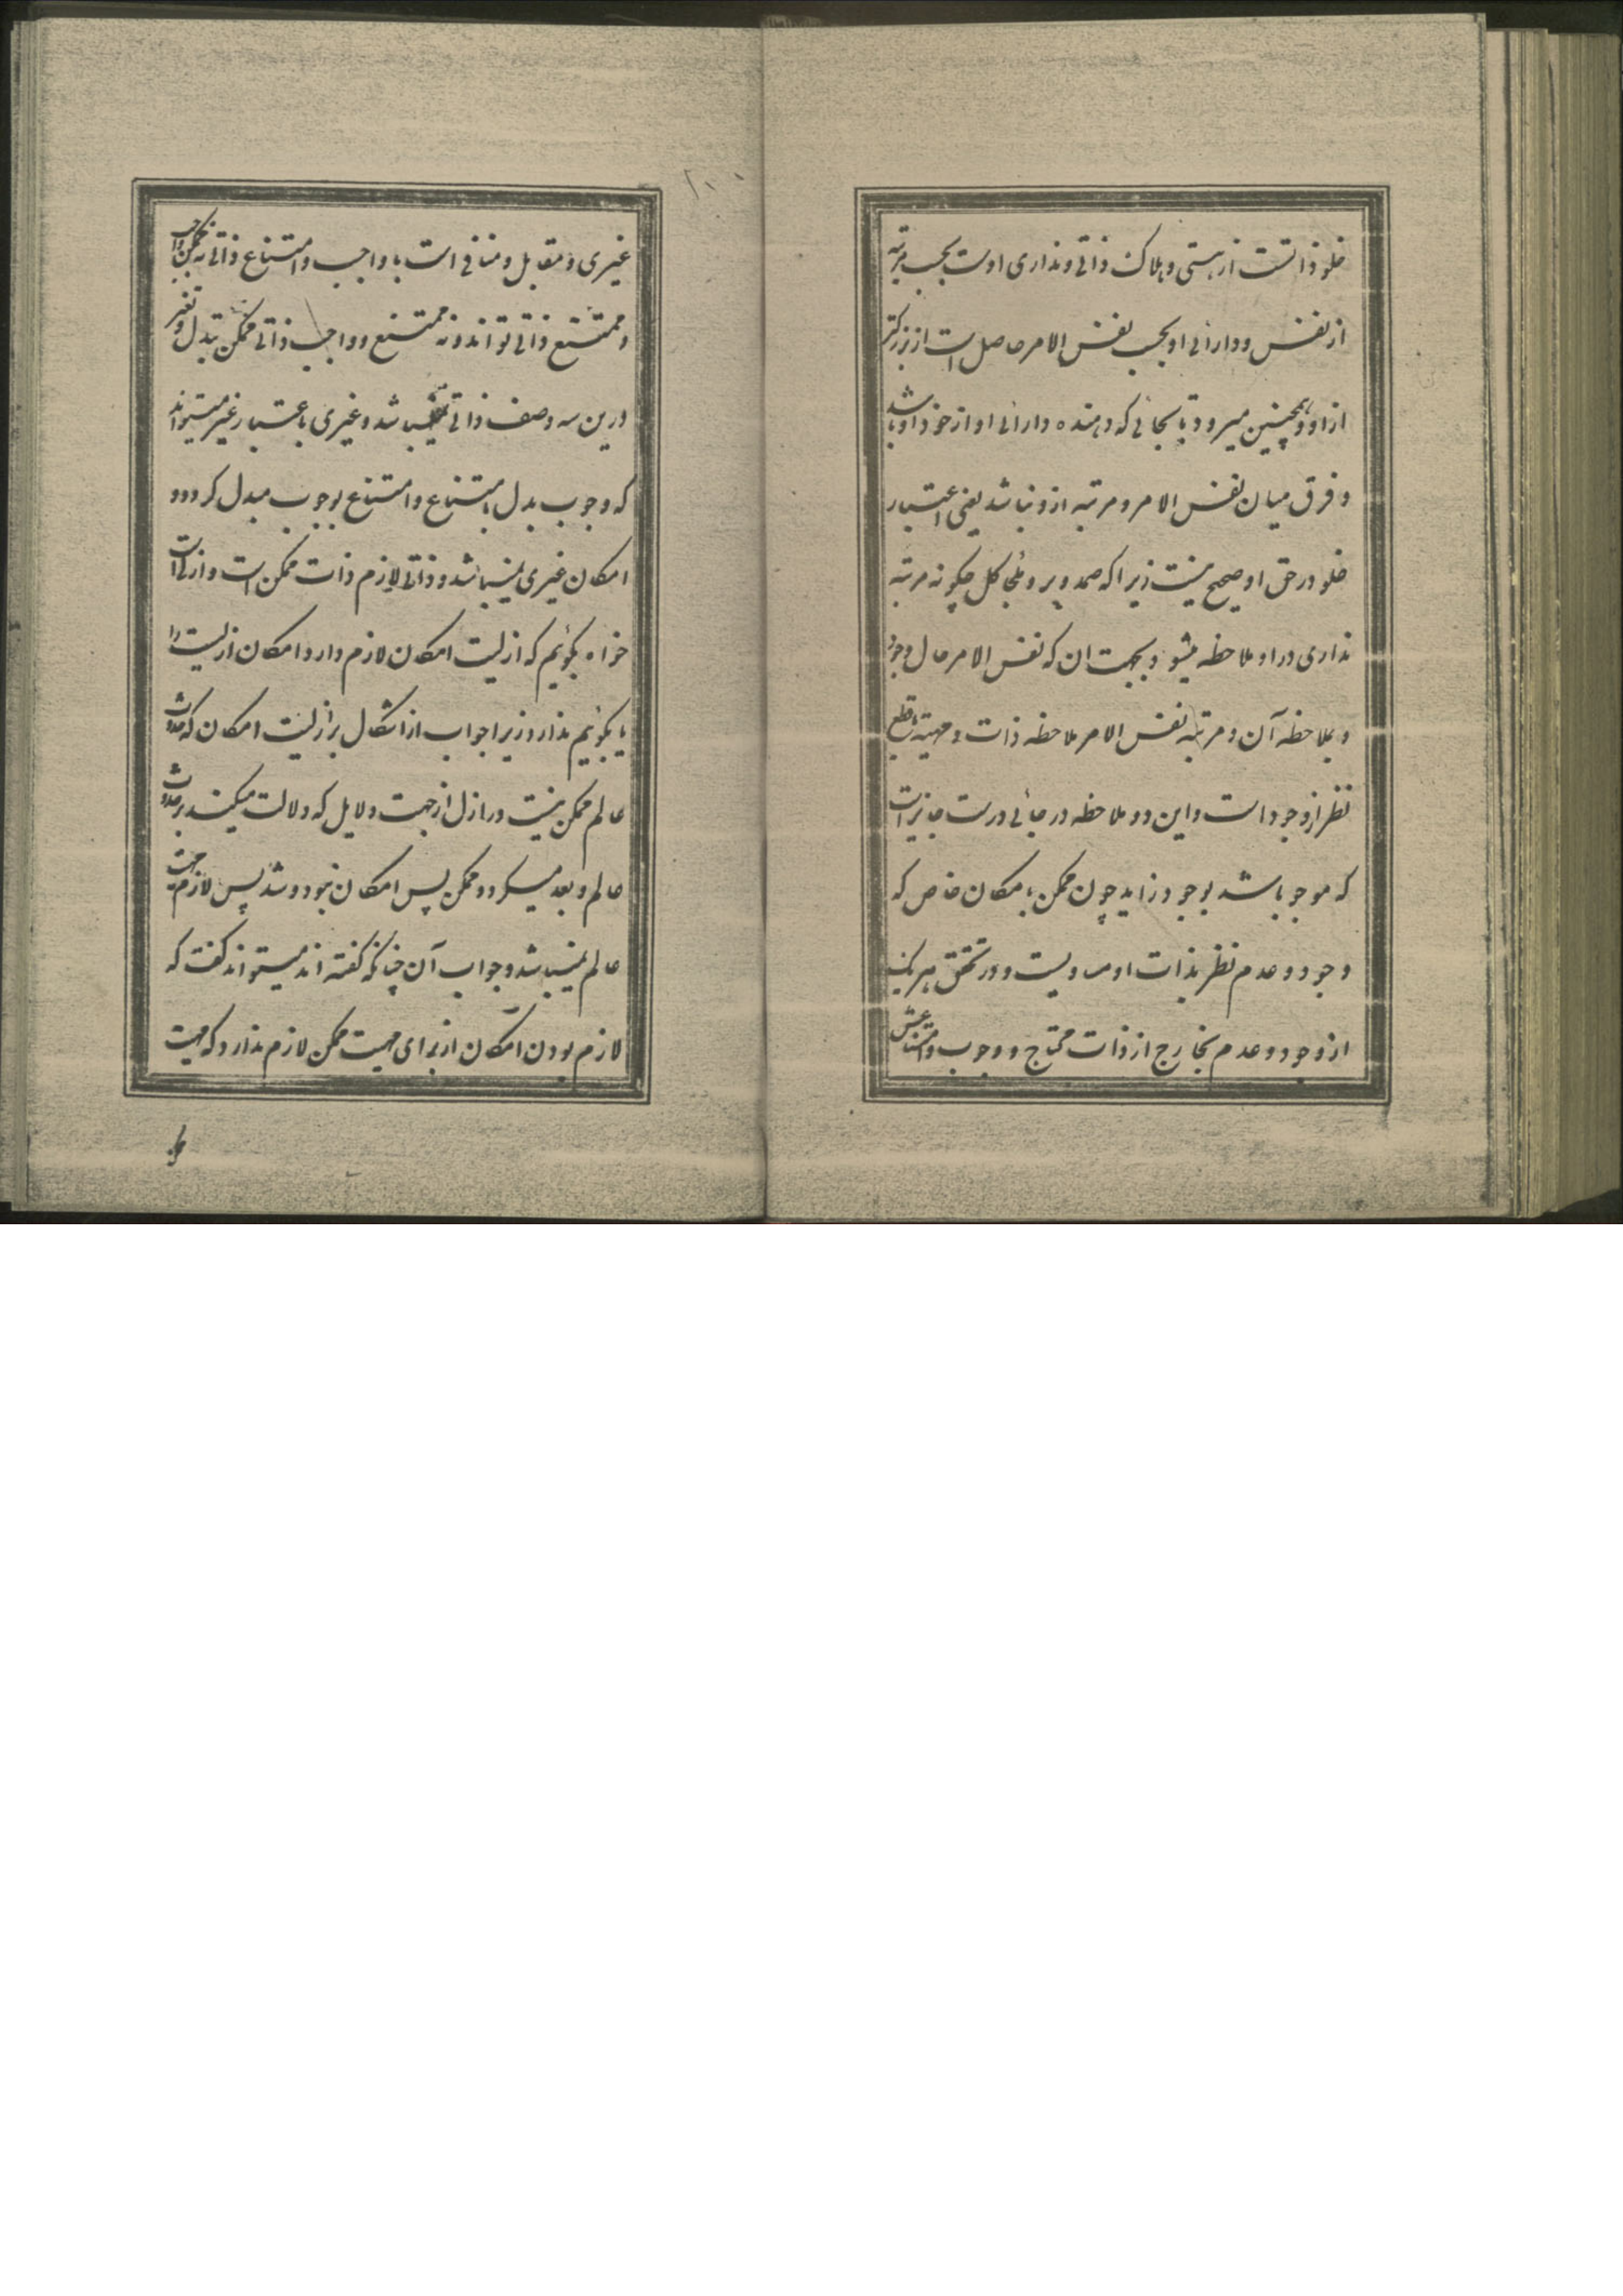 خلو ذاتست از هستی و هلاک ذاتی و نداری اوست بحسب مرتبه
از نفس و دارائی او بحسب نفس الامر حاصل است از بزرگتر
از او و همچنین میرود تا بجائی که دهنده دارائی او از خود او باشد
و فرق میان نفس الامر و مرتبه ازو نباشد یعنی اعتبار
خلو در حق او صحیح نیست زیرا که صمد و پر و ملجأ کل چگونه مرتبه
نداری در او ملاحظه میشود بجهت ان که نفس الامر حال وجود
و بملاحظه آن و مرتبه نفس الامر ملاحظه ذات و مهیته با قطع
نظر از وجود است و این دو ملاحظه در جائی درست جایز است
که موجود باشد بوجود زاید چون ممکن بامکان خاص که
وجود و عدم نظر بذات او مساویست و در تحقق هر یک
از وجود و عدم بخارج از ذات محتاج و وجوب و امتناعش
غیری و مقابل و منافی است با واجب و امتناع ذاتی نه ممکن واجب
و ممتنع ذاتی تواند و نه ممتنع و واجب ذاتی ممکن تبدل و تغیر
درین سه وصف ذاتی نمیباشد و غیری باعتبار غیر میتواند
که وجوب بدل بامتناع و امتناع بوجوب مبدل گردد و
امکان غیری نمیباشد و ذاتی لازم ذات ممکن است و ازلی است
خواه بگوئیم که ازلیت امکان لازم دارد امکان ازلیت را
یا بگوئیم ندارد زیرا جواب از اشکال بر ازلیت امکان که حدوث
عالم ممکن نیست در ازل از جهت دلایل که دلالت میکنند بر حدوث
عالم و بعد میگردد ممکن پس امکان نبود و شد پس لازم مهیت
عالم نمیباشد و جواب آن چنانکه گفته اند میتواند گفت که
لازم بودن امکان از برای مهیت ممکن لازم ندارد که مهیت